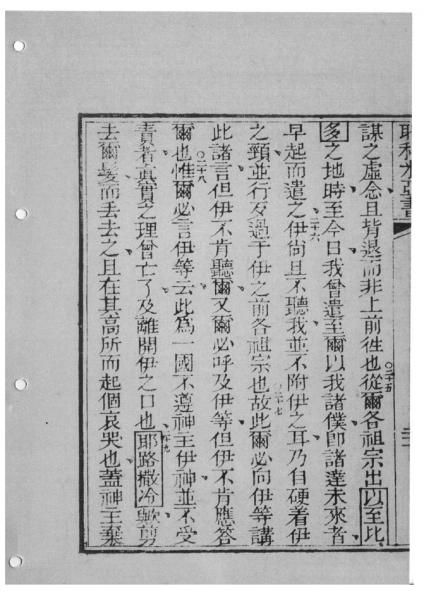 耶利米亞書
謀之虛念且背退而非上前徃也從爾各祖宗出以至比
○二十五
多之地時至今日我曾遣至爾以我諸僕即諸達未來者
早起而遣之伊尚且不聽我並不附伊之耳乃自硬着伊
二十六
之頸並行歹過于伊之前各祖宗也故此爾必向伊等講
○二十七
此諸言但伊不肯聽爾又爾必呼及伊等但伊不肯應答
爾也惟爾必言伊等云此為一國不遵神主伊神並不受
○二十八
責者真實之理曾亡了及離開伊之口也耶路撒冷歟剪
二十九
去爾髮而去去之且在其高所而起個哀哭也蓋神主棄